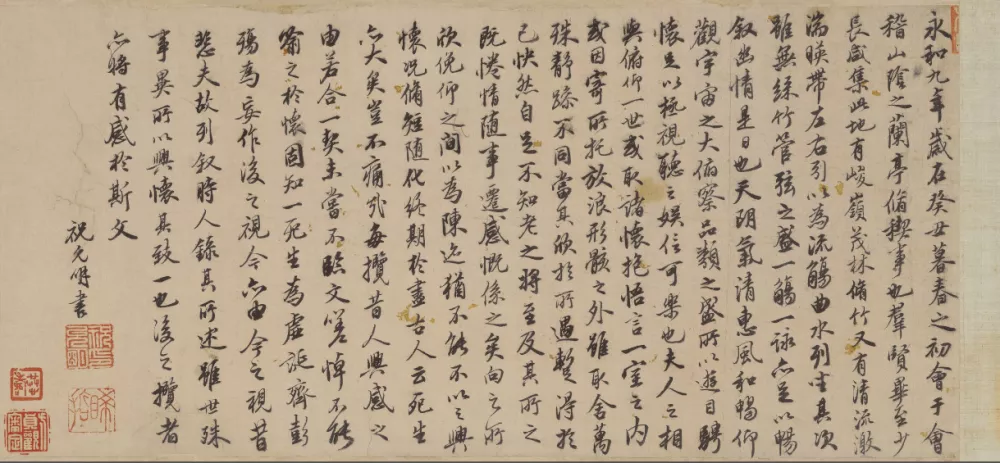 永和九年歲在癸丑暮春之初會于會
稽山陰之蘭亭脩稧事也羣賢畢至少
長咸集此地有峻嶺茂林脩竹又有清流激
湍暎帶左右引以為流觴曲水列坐其次
雖無絲竹管弦之盛一觴一詠亦足以暢
叙幽情是日也天朗氣清惠風和暢仰
觀宇宙之大俯察品類之盛所以遊目騁
懷足以極視聽之娛信可樂也夫人之相
與俯仰一世或取諸懷抱悟言一室之內
或因寄所託放浪形骸之外雖取舍萬
殊靜躁不同當其欣於所遇暫得於
己怏然自足不知老之將至及其所之
既惓情隨事遷感慨係之矣向之所
欣俛仰之間以為陳迹猶不能不以之興
懷況脩短隨化終期於盡古人云死生
亦大矣豈不痛哉每攬昔人興感之
由若合一契未嘗不臨文嗟悼不能
喻之於懷固知一死生為虛誕齊彭
殤為妄作後之視今亦由今之視昔
悲夫故列叙時人錄其所述雖世殊
事異所以興懷其致一也後之攬者
亦將有感於斯文
祝允明書